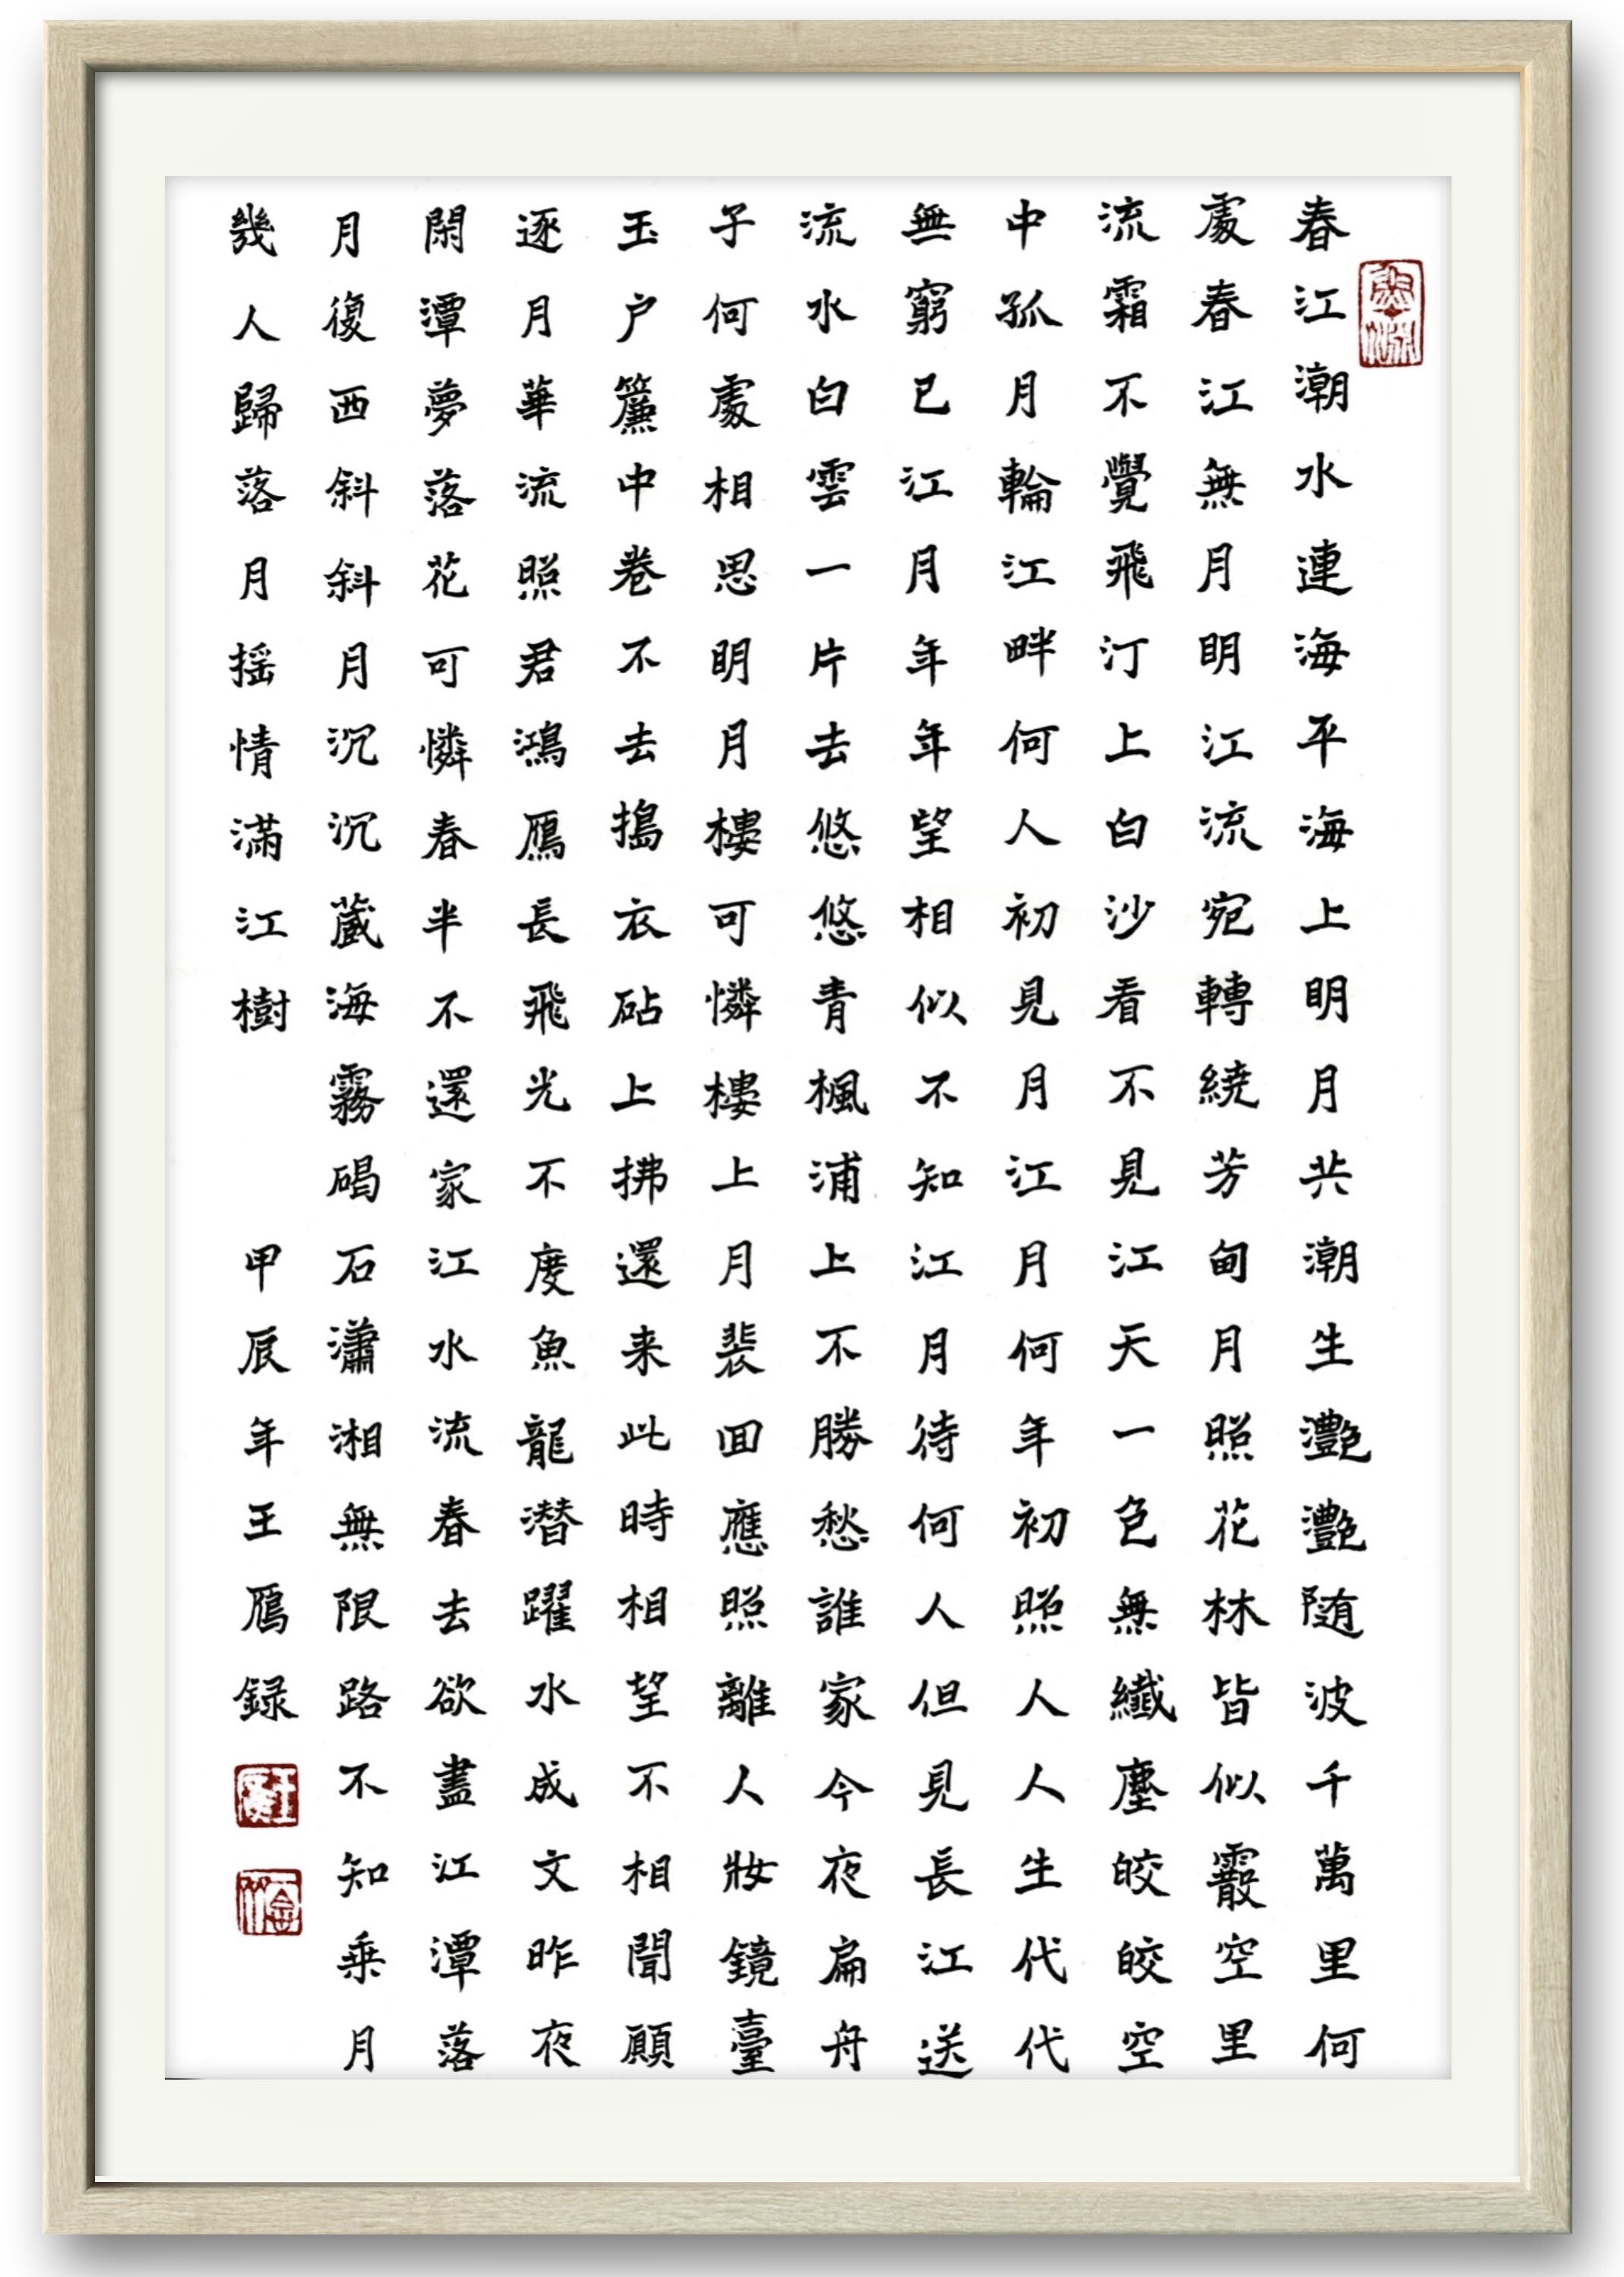 春江潮水連海平海上明月共潮生灔灔随波千萬里何
處春江無月明江流宛轉繞芳甸月照花林皆似霰空里
流霜不覺飛汀上白沙看不見江天一色無纖塵皎皎空
中孤月輪江畔何人初見月江月何年初照人人生代代
無窮已江月年年望相似不知江月待何人但見長江送
流水白雲一片去悠悠青楓浦上不勝愁誰家今夜扁舟
子何處相思明月樓可憐樓上月裴回應照離人妝鏡臺
玉户簾中卷不去搗衣砧上拂還来此時相望不相聞願
逐月華流照君鴻鴈長飛光不度魚龍潛躍水成文昨夜
閑潭夢落花可憐春半不還家江水流春去欲盡江潭落
月復西斜斜月沉沉藏海霧碣石瀟湘無限路不知乘月
幾人歸落月摇情滿江樹
甲辰年王鴈録